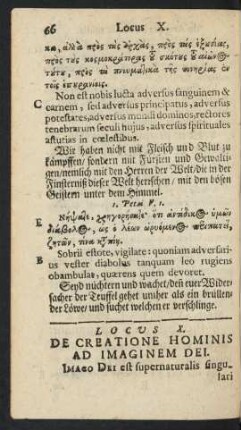 66 Locus X.
κα, ἀλλὰ πρὸς τὰς ἀρχὰς, πρὸς τὰς ἐξουσίας,
πρὸς τοὺς κοσμοκράτορας τοῦ σκότους τοῦ αἰῶν@
τούτου, πρὸς τὰ πνευματικὰ τῆς πονηρίας ἐν
τοῖς ἐπουρανίοις.
Non est nobis lucta adversus sanguinem &
C carnem, sed adversus principatus, adversus
potestates, adversus mundi dominos, rectores
tenebrarum seculi hujus, adversus spirituales
astutias in cœlestibus.
Wir haben nicht mit Fleisch und Blut zu
kämpffen/ sondern mit Fürsten und Gewalti-
gen/ nemlich mit den Herren der Welt/ die in der
Finsterniß dieser Welt herrschen/ mit den bösen
Geistern unter dem Himmel.
1. Petri V.
Νήψατε, γρηγορήσατε· ὅτι ἀντίδικ@ ὑμῶν
E διάβολ@, ὡς λέων ὠρυόμεν@ περιπατεῖ,
ζητῶν, τίνα
Sobrii estote, vigilate: quoniam adversari-
B us vester diabolus tanquam leo rugiens
obambulat, quærens quem devoret.
Seyd nüchtern und wachet/ deñ euer Wider-
sacher der Teuffel gehet umher als ein brüllen-
der Löwe/ und suchet welchen er verschlinge.
LOCUS X.
DE CREATIONE HOMINIS
AD IMAGINEM DEI.
IMAGO DEI est supernaturalis singu-
lari